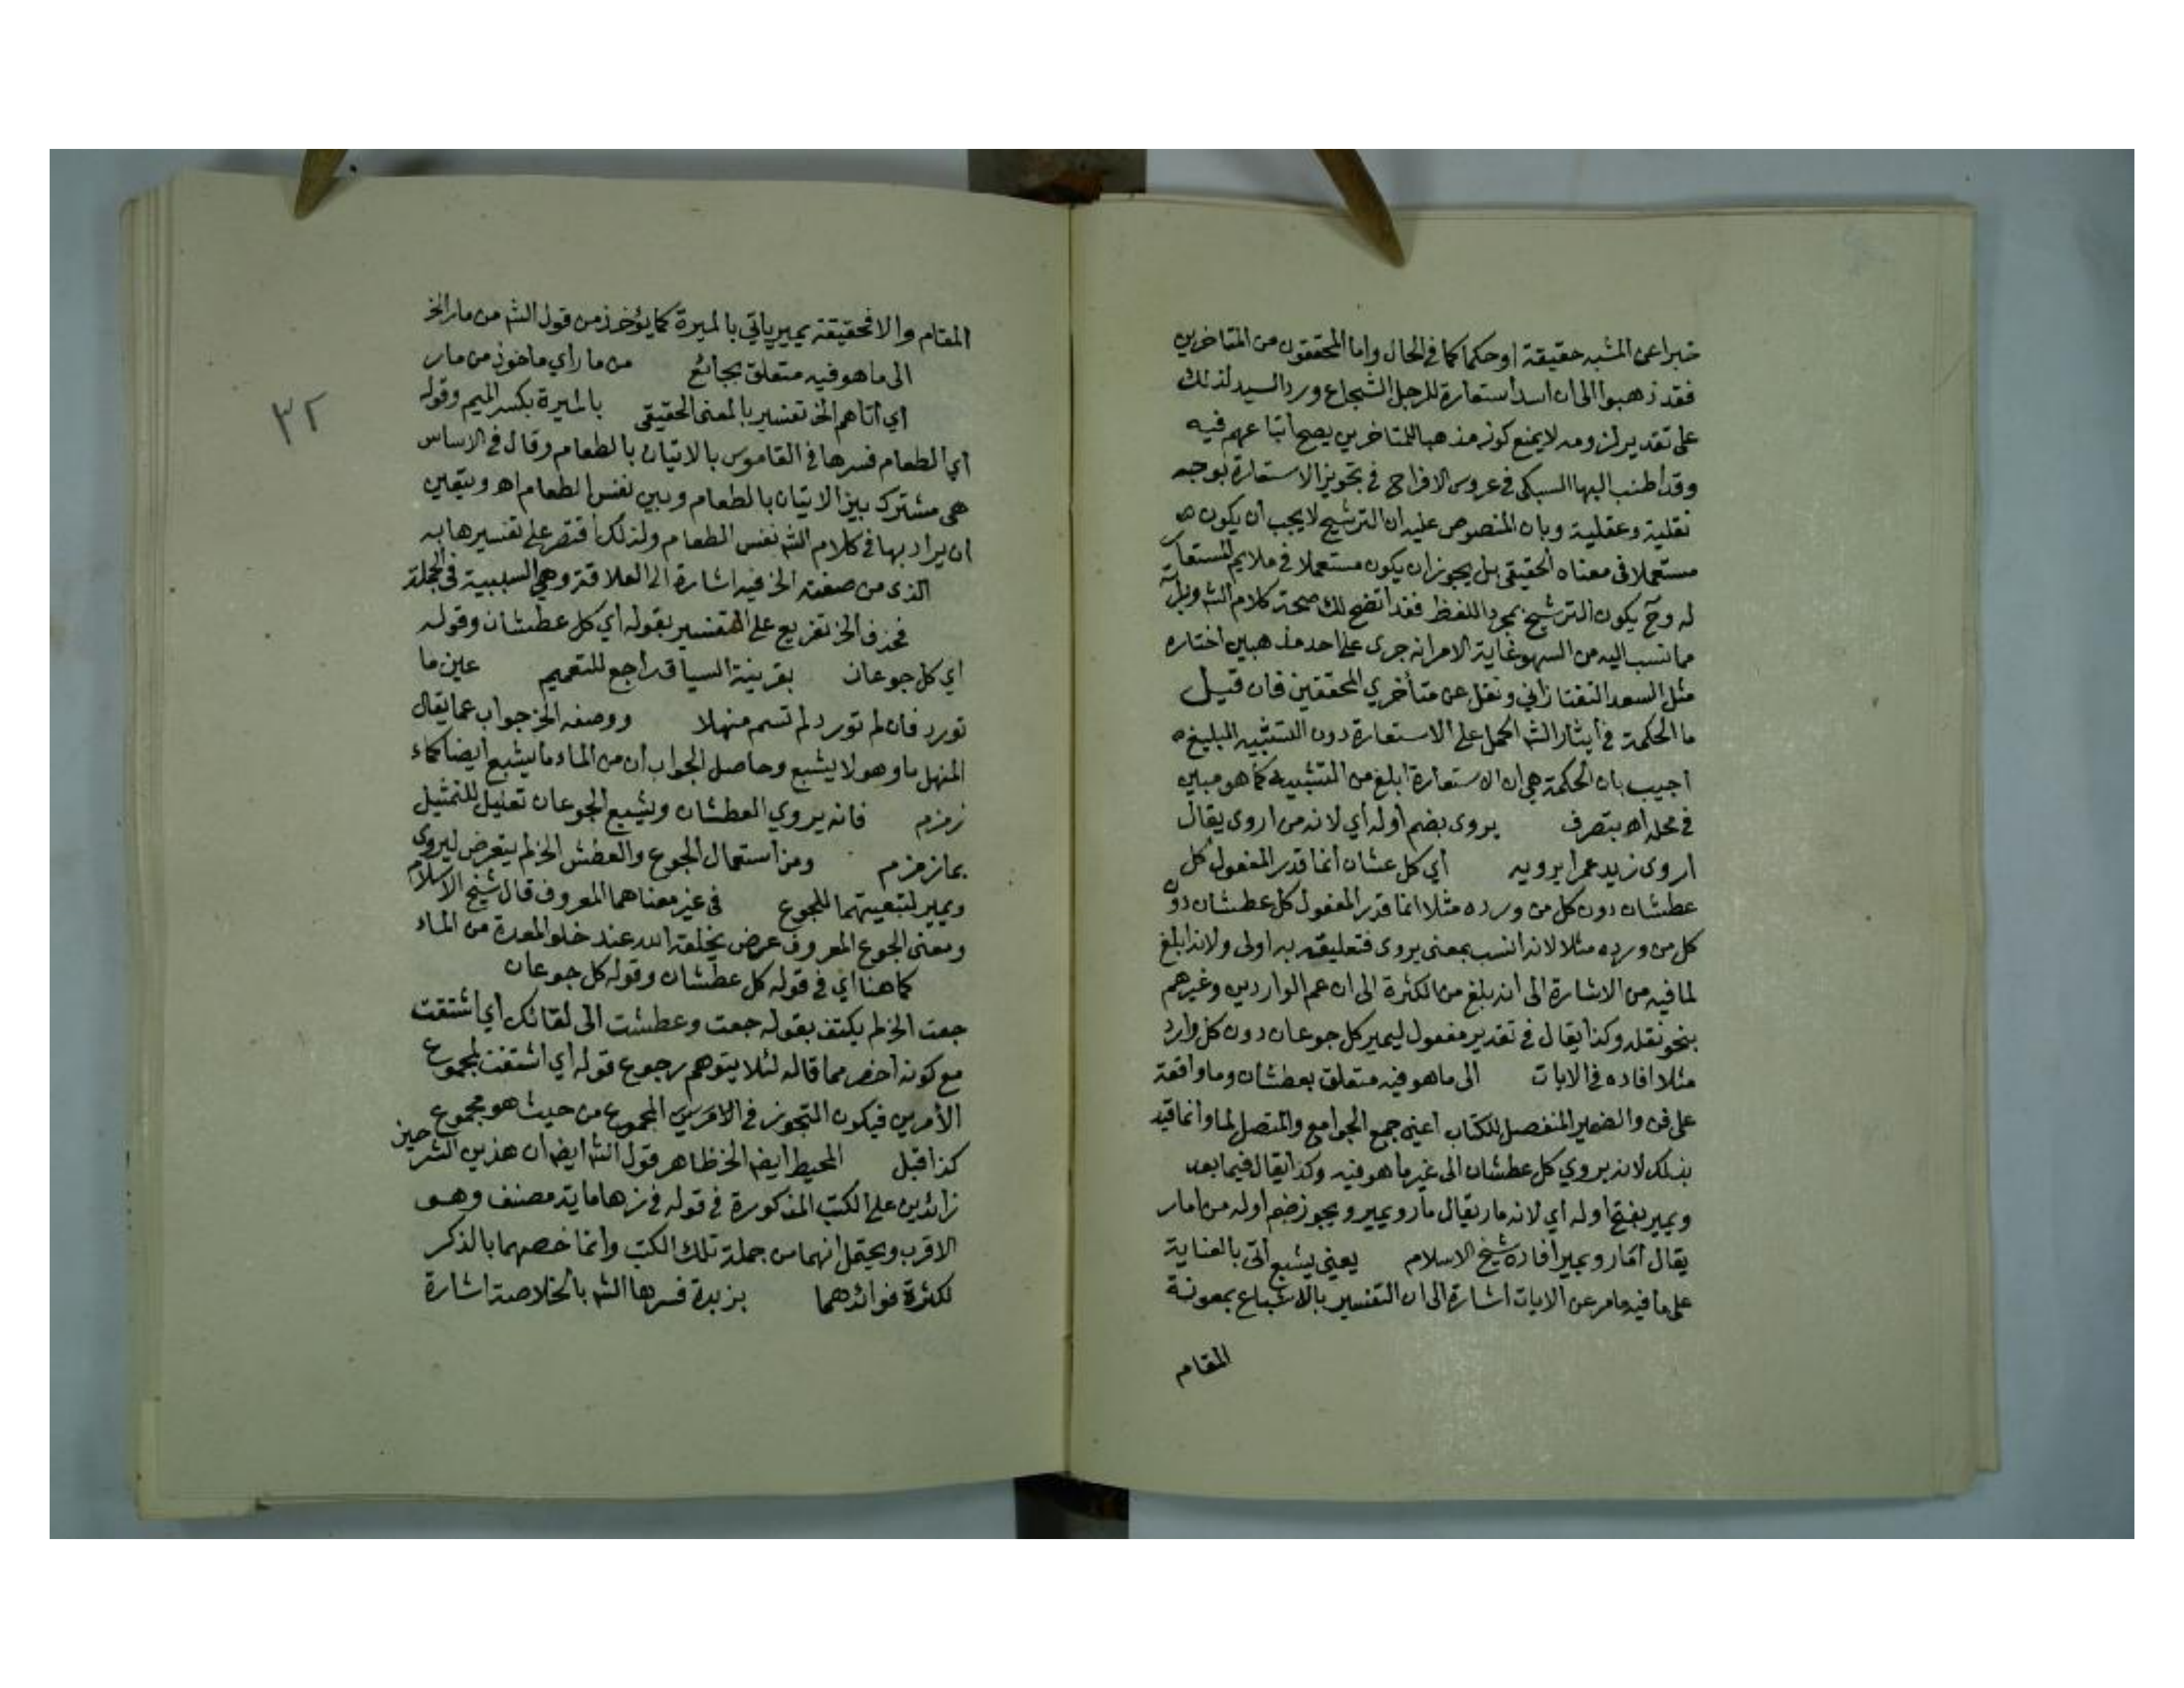 خبرا عن المشبه حقيقة او حكما كما في الحال واما المحققون من المتاخرين
فقد ذهبوا الى ان اسدا استعارة للرجل الشجاع ورد السيد لذلك
على تقدير لزومه لا يمنع كونه مذهبا للمتاخرين يصح اتباعهم فيه
وقد اطنب البها السبكى في عروس الافراح في تجويز الاستعارة بوجه
نقلية وعقلية وبان المنصوص عليه ان الترشيح لا يجب ان يكون
مستعملا في معناه الحقيقي بل يجوز ان يكون مستعملا في ملايم المستعار
له وح يكون الترشيح بمجرد اللفظ فقد اتضح لك صحة كلام الش وبرآته
مما نسب اليه من السهو غاية الامر انه جرى على احد مذهبين اختاره
مثل السعد التفتازاني ونقل عن متأخري المحققين فان قيل
ما الحكمة في ايثار الش الحمل على الاستعارة دون التشبيه البليغ
اجيب بان الحكمة هي ان الاستعارة ابلغ من التشبيه كما هو مبين
في محله اه بتصرف يروى بضم اوله أي لانه من اروى يقال
اروى زيد عمرا يرويه أي كل عشان انما قدر المفعول كل
عطشان دون كل من ورده مثلا انما قدر المفعول كل عطشان دون
كل من ورده مثلا لانه انسب بمعنى يروى فتعليقه به اولى ولانه ابلغ
لما فيه من الاشارة الى انه بلغ من الكثرة الى ان عم الواردين وغيرهم
بنحو نقله وكذا يقال في تقدير مفعول ليمير كل جوعان دون كل وارد
مثلا افاده في الايات الى ما هو فيه متعلق بعطشان وما واقعة
على فن والضمير المنفصل للكتاب اعني جمع الجوامع والمتصل لما وانما قيد
بذلك لانه يروي كل عطشان الى غير ما هو فيه وكذا يقال فيما بعد
ويمير بفتح اوله أي لانه مار يقال مار ويمير ويجوز ضم اوله من امار
يقال أمار ويمير أفاده شيخ الاسلام يعني يشبع أتى بالعناية
على ما فيه مامر عن الايات اشارة الى ان التفسير بالاشباع بمعونة
المقام
المقام والا فحقيقة يمير ياتي بالميرة كما يؤخذ من قول الش من مار الخ
الى ما هو فيه متعلق بجائع من مار أي ماخوذ من مار
أي أتاهم الخ تفسير بالمعنى الحقيقي بالميرة بكسر الميم وقوله
أي الطعام فسرها في القاموس بالاتيان بالطعام وقال في الاساس
هي مشترك بين الاتيان بالطعام وبين نفس الطعام اه ويتعين
ان يراد بها في كلام الش نفس الطعام ولذلك اقتصر على تفسيرها به
الذى من صفته الخ فيه اشارة الى العلاقة وهي السببية في الجملة
فحذف الخ تفريع على التفسير بقوله أي كل عطشان وقوله
اي كل جوعان بقرينة السياق راجع للتعميم عين ما
تورد فان لم تورد لم تسم منهلا ووصفه الخ جواب عما يقال
المنهل ماء وهو لا يشبع وحاصل الجواب ان من الماء ما يشبع ايضا كماء
زمزم فانه يروي العطشان ويشبع الجوعان تعليل للتمثيل
بماء زمزم ومن استعمال الجوع والعطش الخ لم يتعرض ليروي
ويمير لتبعيتهما للجوع في غير معناهما المعروف قال شيخ الاسلام
ومعنى الجوع المعروف عرض يخلقه الله عند خلو المعدة من الماء
كما هنا اي في قوله كل عطشان وقوله كل جوعان
جعت الخ لم يكتف بقوله جعت وعطشت الى لقائك أي اشتقت
مع كونه اخصر مما قاله لئلا يتوهم رجوع قوله أي اشتقت لمجموع
الأمرين فيكون التجوز في الامرين المجموع من حيث هو مجموع
كذا قيل المحيط ايض الخ ظاهر قول الش ايض ان هذين الشرحين
زائدين على الكتب المذكورة في قوله في زها ماية مصنف وهو
الاقرب ويحتمل انهما من جملة تلك الكتب وانما خصهما بالذكر
لكثرة فوائدهما بزبدة فسرها الش بالخلاصة اشارة
٣٢